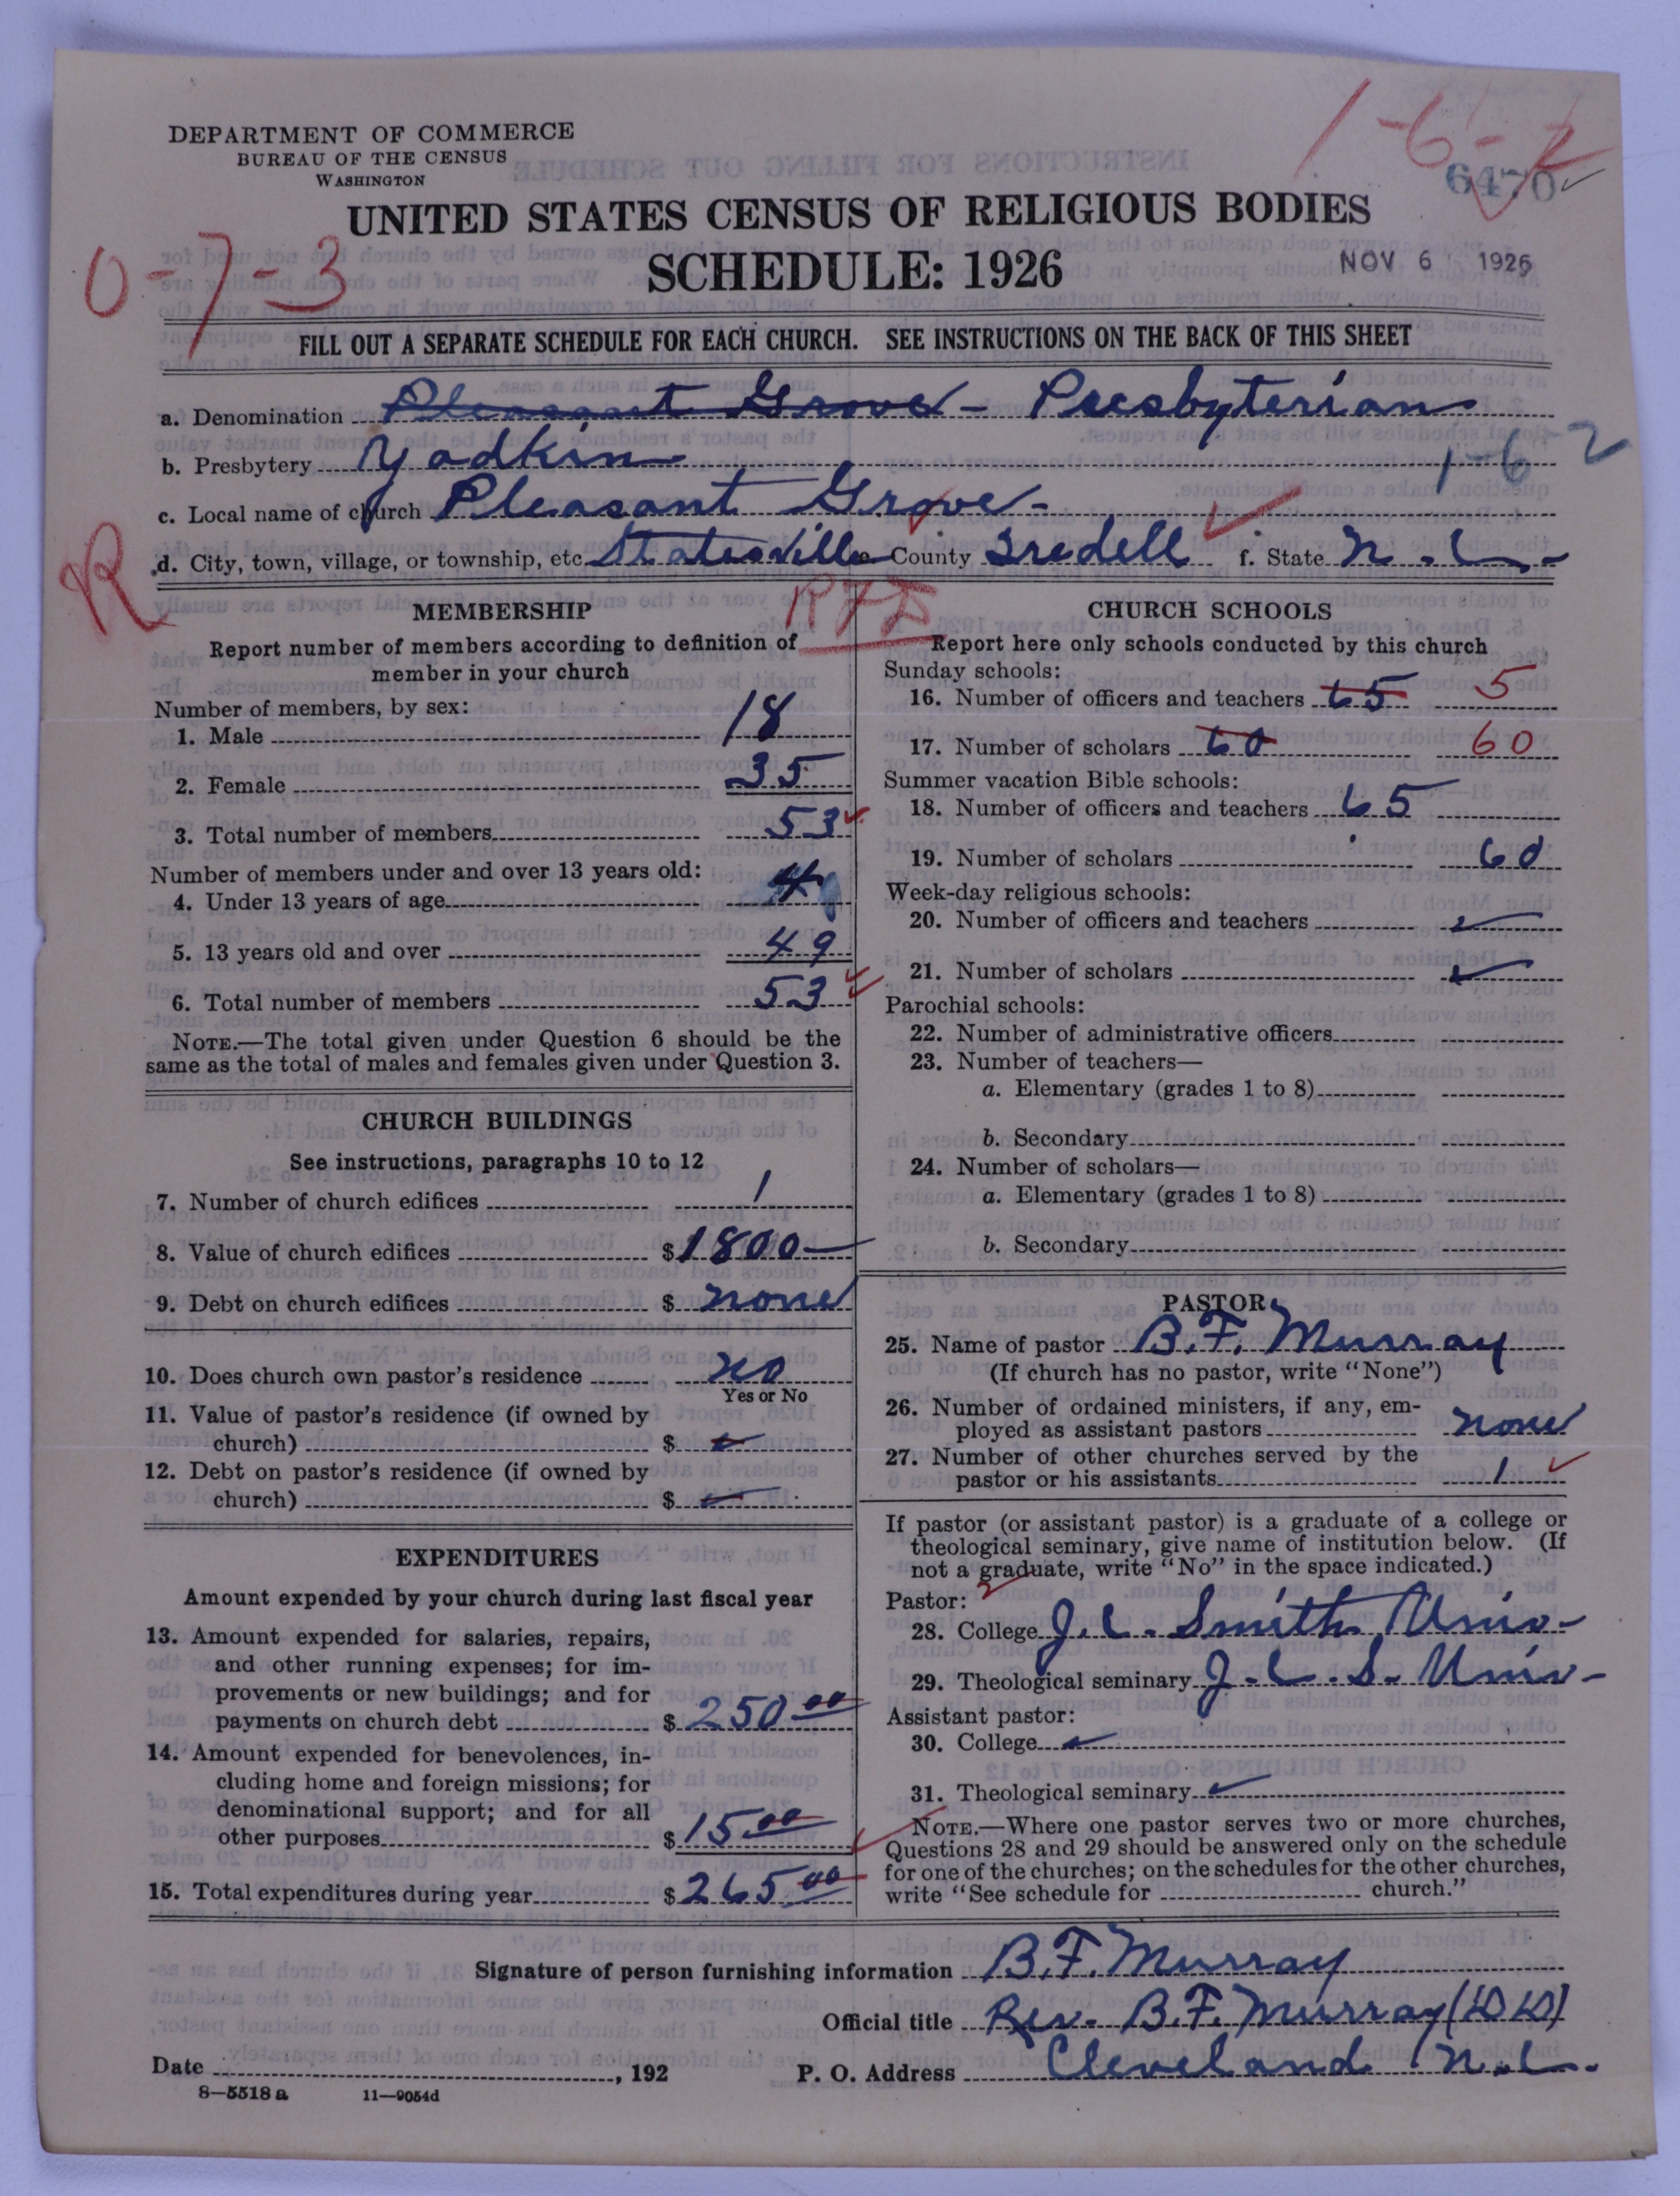 DEPARTMENT OF COMMERCE
BUREAU OF THE CENSUS
WASHINGTON
1-6-2
6470
UNITED STATES CENSUS OF RELIGIOUS BODIES
SCHEDULE: 1926
NOV 6 1926
0-7-3
FILL OUT A SEPARATE SCHEDULE FOR EACH CHURCH. SEE INSTRUCTIONS ON THE BACK OF THIS SHEET
a. Denomination Pleasant Grove - Presbyterian
b. Presbytery Yadkin 1-6 2
c. Local name of church Pleasant Grove -
R
d. City, town, village, or township, etc. Statesville e. County Iredell f. State N. C.
RFD
MEMBERSHIP
Report number of members according to definition of
member in your church
Number of members, by sex:
1. Male 18
2. Female 35
3. Total number of members 53
Number of members under and over 13 years old:
4. Under 13 years of age 4
5. 13 years old and over 49
6. Total number of members 53
NOTE.—The total given under Question 6 should be the
same as the total of males and females given under Question 3.
CHURCH BUILDINGS
See instructions, paragraphs 10 to 12
7. Number of church edifices 1
8. Value of church edifices $1800—
9. Debt on church edifices $ none
10. Does church own pastor's residence no
Yes or No
11. Value of pastor's residence (if owned by
church) $
12. Debt on pastor's residence (if owned by
church) $
EXPENDITURES
Amount expended by your church during last fiscal year
13. Amount expended for salaries, repairs,
and other running expenses; for im-
provements or new buildings; and for
payments on church debt $ 250 00
14. Amount expended for benevolences, in-
cluding home and foreign missions; for
denominational support; and for all
other purposes $ 15 00
15. Total expenditures during year $ 265 00
CHURCH SCHOOLS
Report here only schools conducted by this church
Sunday schools:
16. Number of officers and teachers 65 5
17. Number of scholars 60 60
Summer vacation Bible schools:
18. Number of officers and teachers 65
19. Number of scholars 60
Week-day religious schools:
20. Number of officers and teachers
21. Number of scholars
Parochial schools:
22. Number of administrative officers
23. Number of teachers—
a. Elementary (grades 1 to 8)
b. Secondary
24. Number of scholars—
a. Elementary (grades 1 to 8)
b. Secondary
PASTOR
25. Name of pastor B. F. Murray
(If church has no pastor, write "None")
26. Number of ordained ministers, if any, em-
ployed as assistant pastors none
27. Number of other churches served by the
pastor or his assistants 1
If pastor (or assistant pastor) is a graduate of a college or
theological seminary, give name of institution below. (If
not a graduate, write "No" in the space indicated.)
Pastor:
28. College J. C. Smith Univ-
29. Theological seminary J. C. S. Univ-
Assistant pastor:
30. College
31. Theological seminary
NOTE.—Where one pastor serves two or more churches,
Questions 28 and 29 should be answered only on the schedule
for one of the churches; on the schedules for the other churches,
write "See schedule for church."
Signature of person furnishing information B. F. Murray
Official title Rev. B. F. Murray (DD)
Date , 192 P. O. Address Cleveland N. C.
8—5518 a 11—9054d